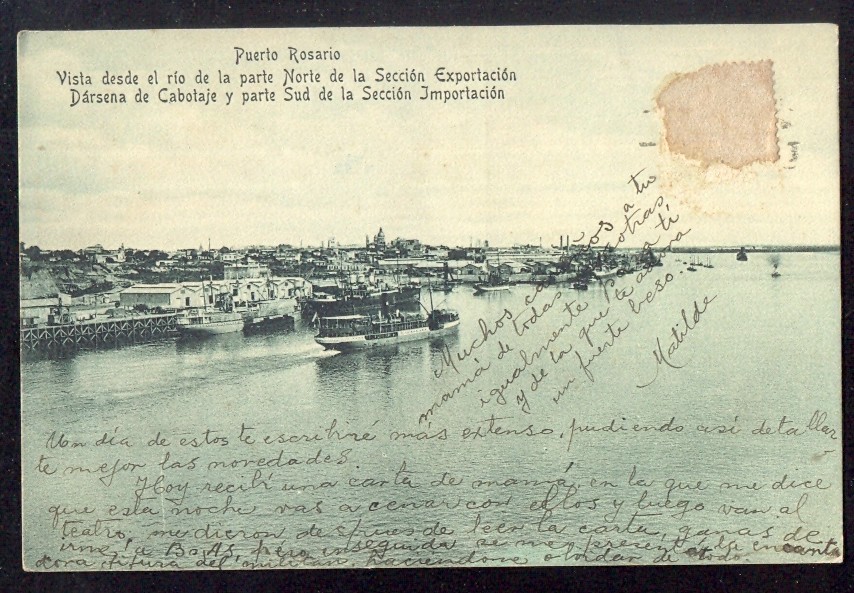 Puerto Rosario
Vista desde el río de la parte Norte de la Sección Exportación
Dársena de Cabotaje y parte Sud de la Sección Importación
Muchos a tu
mamá de todas nosotras
igualmente para ti
y de la que te adora
un fuerte beso.
Matilde
Un día de estos te escribiré más extenso, pudiendo así detallar
te mejor las novedades.
Hoy recibí una carta de mamá en la que me dice
que esta noche vas a cenar con ellos y luego van al
teatro, me dieron despues de leer la carta, ganas de
irme á Bs As, pero enseguida se me presentó la encanta
dora figura del militar haciendome olvidar de todo.